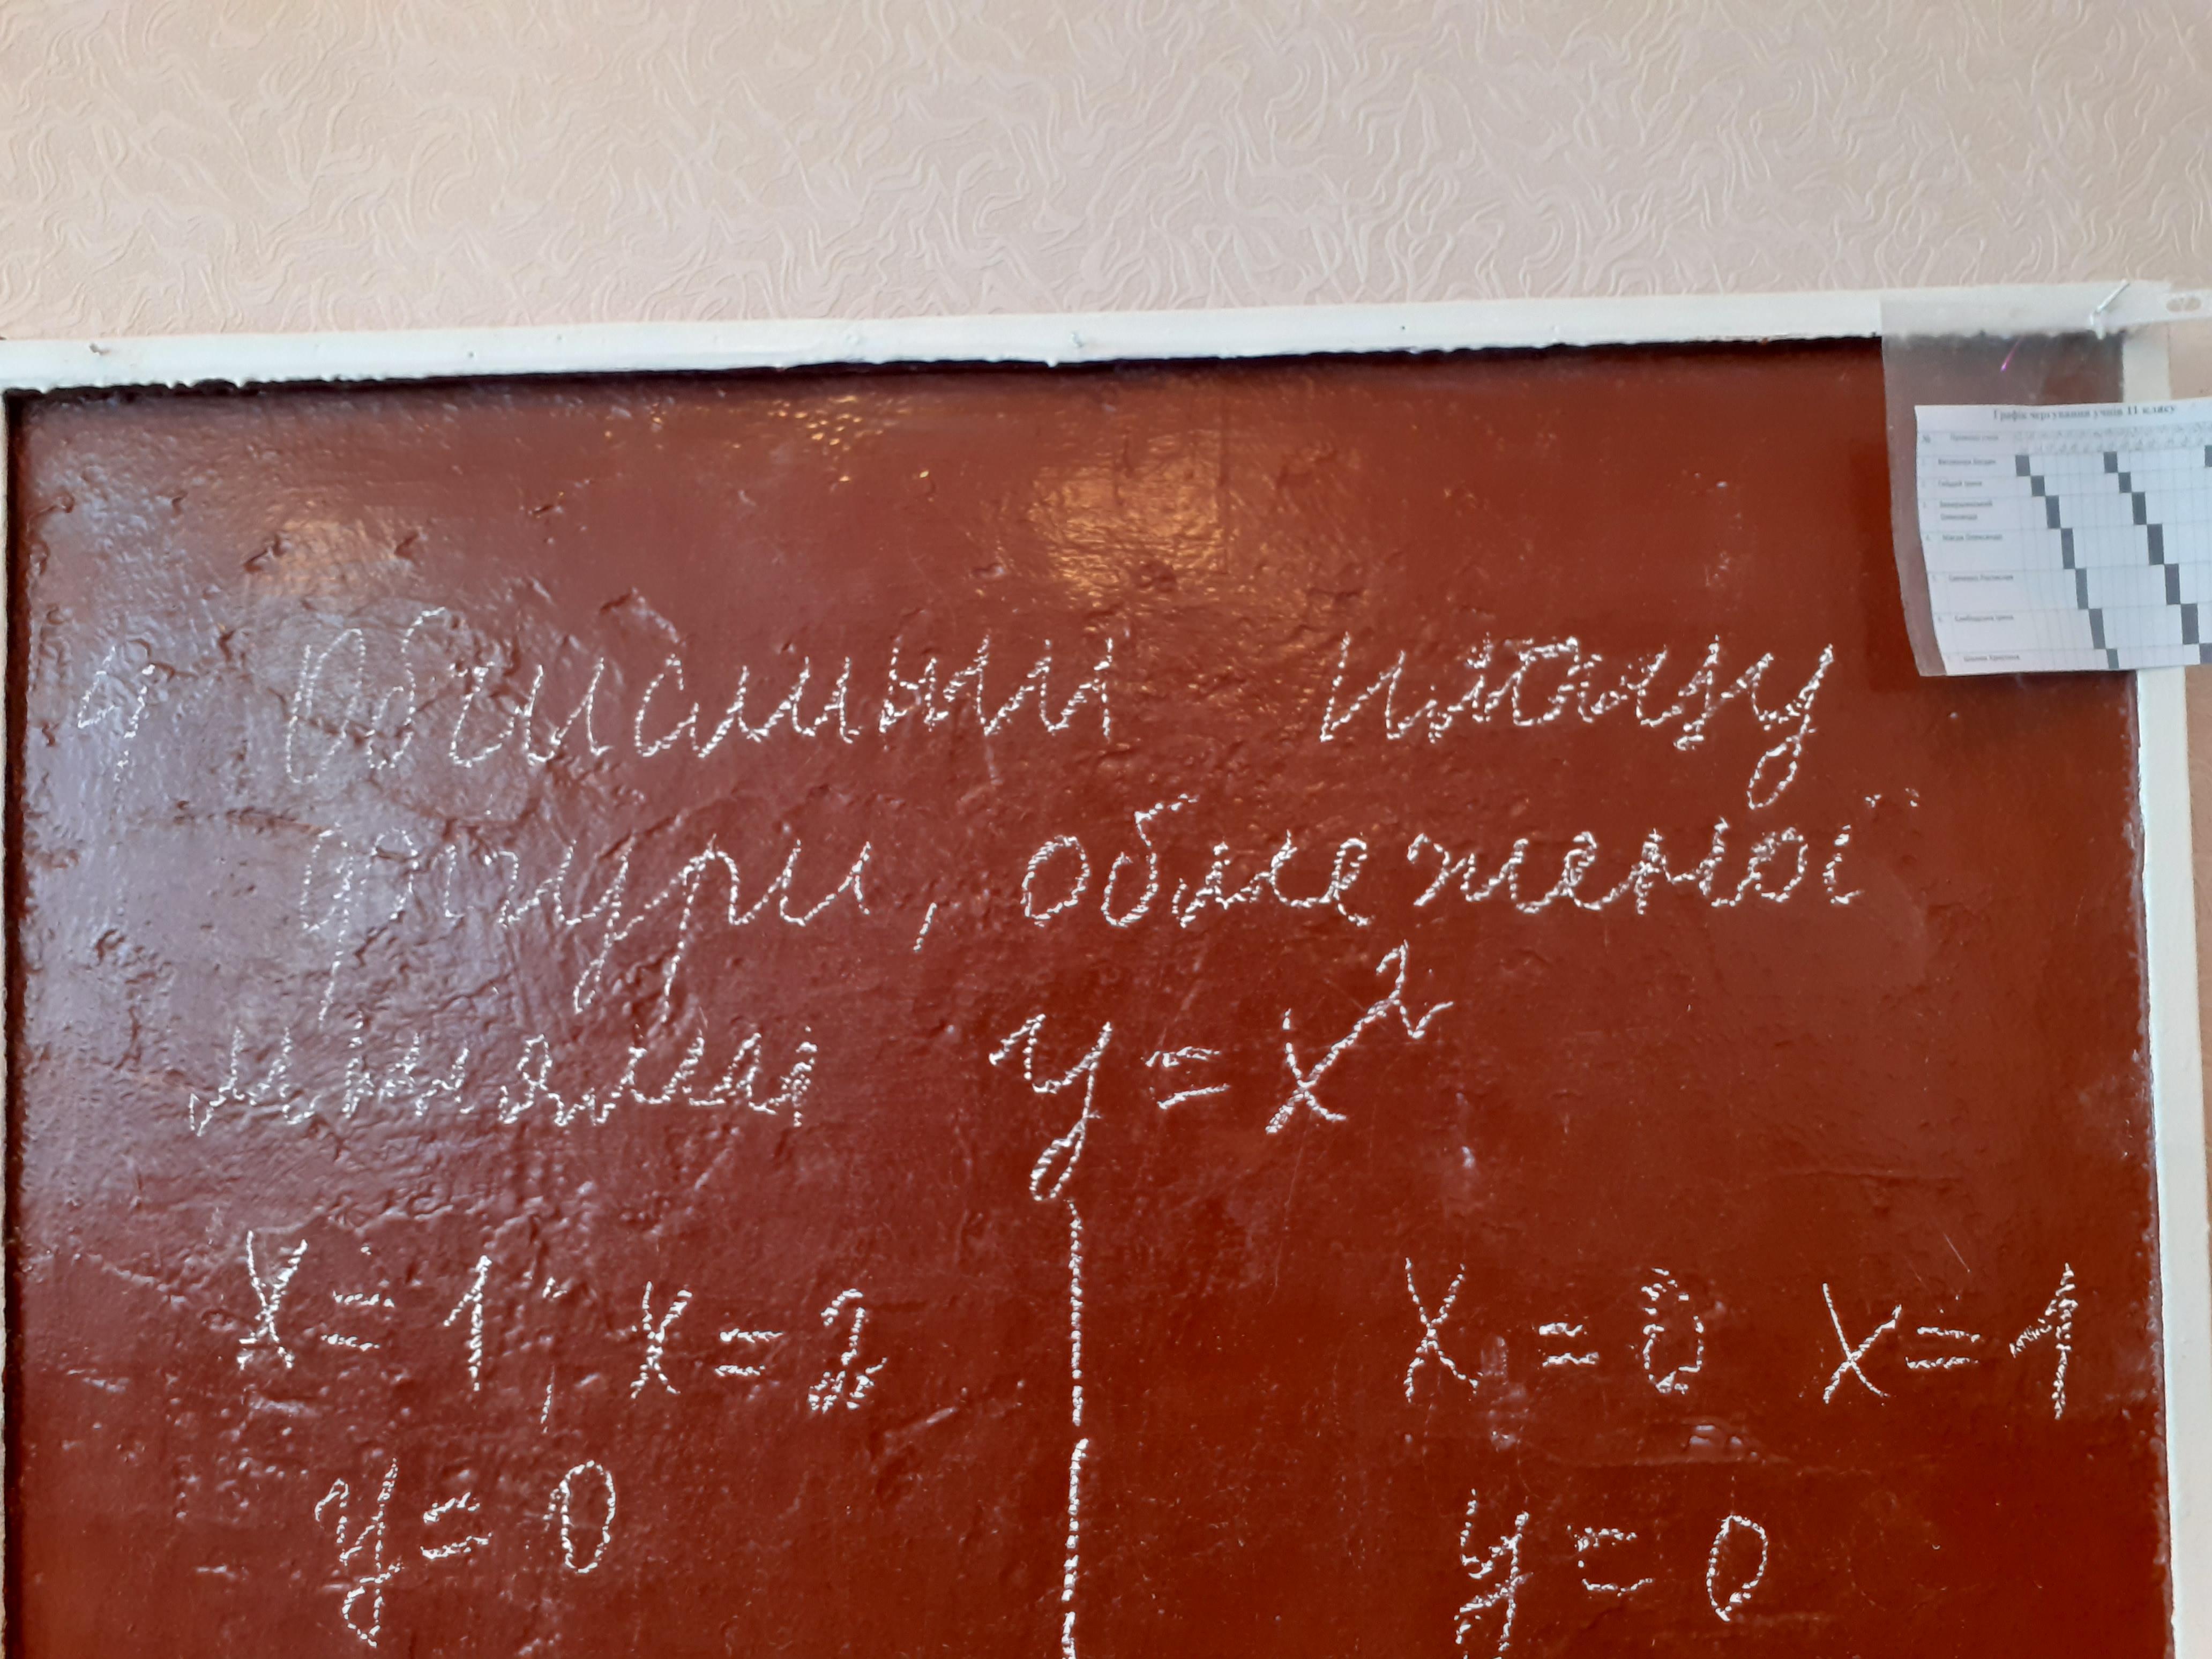 Графік чергування учнів 11 класу
4. Обчислити площу
фігури, обмеженої
лініями y = x²
x = 1; x = 2
y = 0
x = 0 x = 1
y = 0